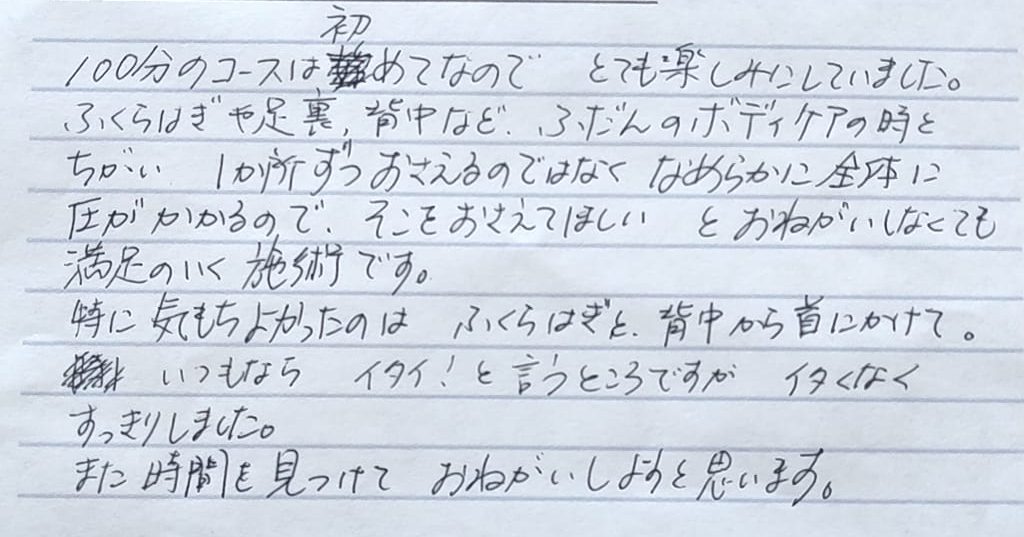 100分のコースは初めてなので とても楽しみにしていました。
ふくらはぎや足裏、背中など、ふだんのボディケアの時と
ちがい 1か所ずつおさえるのではなく なめらかに全体に
圧がかかるので、そこをおさえてほしい とおねがいしなくても
満足のいく施術です。
特に気もちよかったのは ふくらはぎと、背中から首にかけて。
いつもなら イタイ!と言うところですが イタくなく
すっきりしました。
また時間を見つけて おねがいしようと思います。